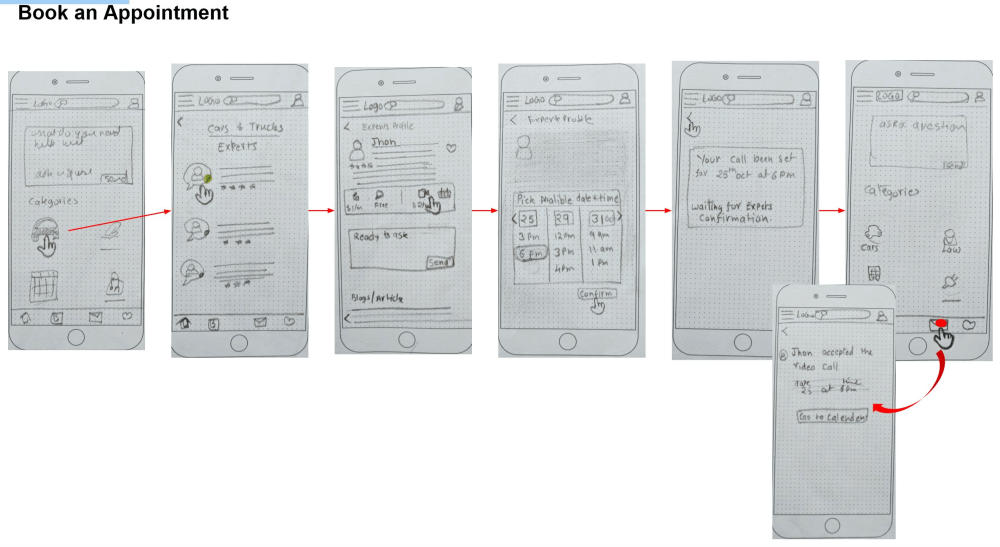 Book an Appointment
Logo
what do you need
help with
ask expert
Send
Categories
Logo
Cars & Trucks
Experts
Logo
Experts Profile
Jhon
$1/m
Free
Ready to ask
Send
Blogs/Article
Logo
Experts Profile
Pick Avalible date & time
25 29 31
3 pm 12 pm 9 am
6 pm 3 pm 11 am
4pm 1 pm
Confirm
Logo
Your call been set
for 25th oct at 6 pm
waiting for Experts
Confirmation.
LOGO
ask a question
Send
Categories
Cars
Law
Logo
Jhon accepted the
video call
Date
25 at 6pm
Go to Calender